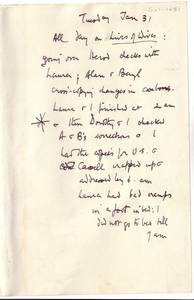 Tuesday Jan 31
All day on Lives of Wives:
going over Herod checks with
Laura; Alan & Beryl
cross-copying changes in carbons.
Laura & I finished at 2 am
& then Dorothy & I checked
A & B's corrections & I
had the copies for U.S. &
Cassell wrapped up &
addressed by 6. am
Laura had bad cramps
in a foot in bed: I
did not go to bed till
7 am